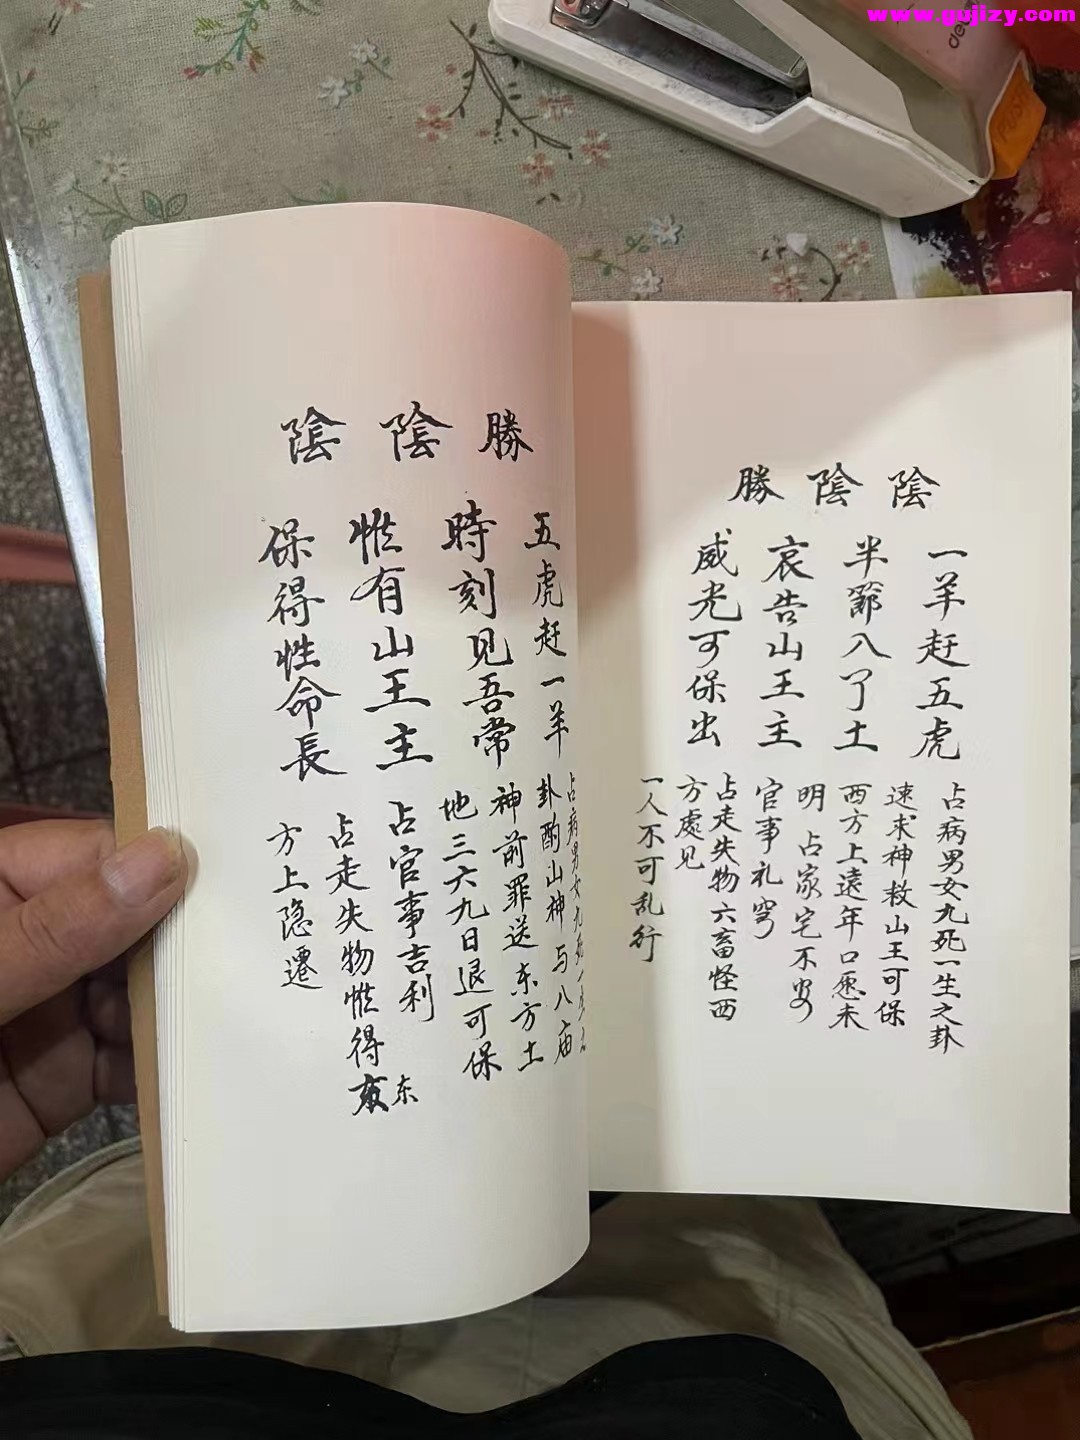 www.gujizy.com
陰陰勝
一羊赶五虎
半節入了土
哀告山王主
威光可保出
占病男女九死一生之卦
速求神救山王可保
西方上遠年口愿未
明 占家宅不安
官事礼穹
占走失物六畜怪西
方處见
一人不可乱行
勝陰陰
五虎赶一羊
時刻见吾常
惟有山王主
保得性命長
占病男女九死一生之
卦酌山神与八庙
神前罪送东方土
地三六九日退可保
占官事吉利
占走失物惟得 东
方上隐遷